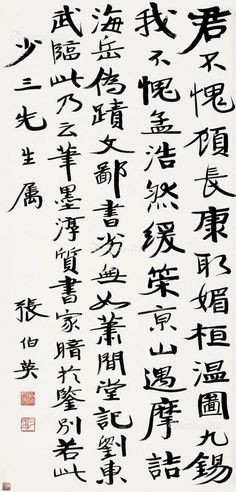 君不愧頋長康耶媚桓溫圖九錫
我不愧孟浩然緩策京山遇摩詰
海岳偽蹟文鄙書劣無如蕭閒堂記劉東
武臨此乃云筆墨淳質書家暗於鑒別若此
少三先生属
張伯英